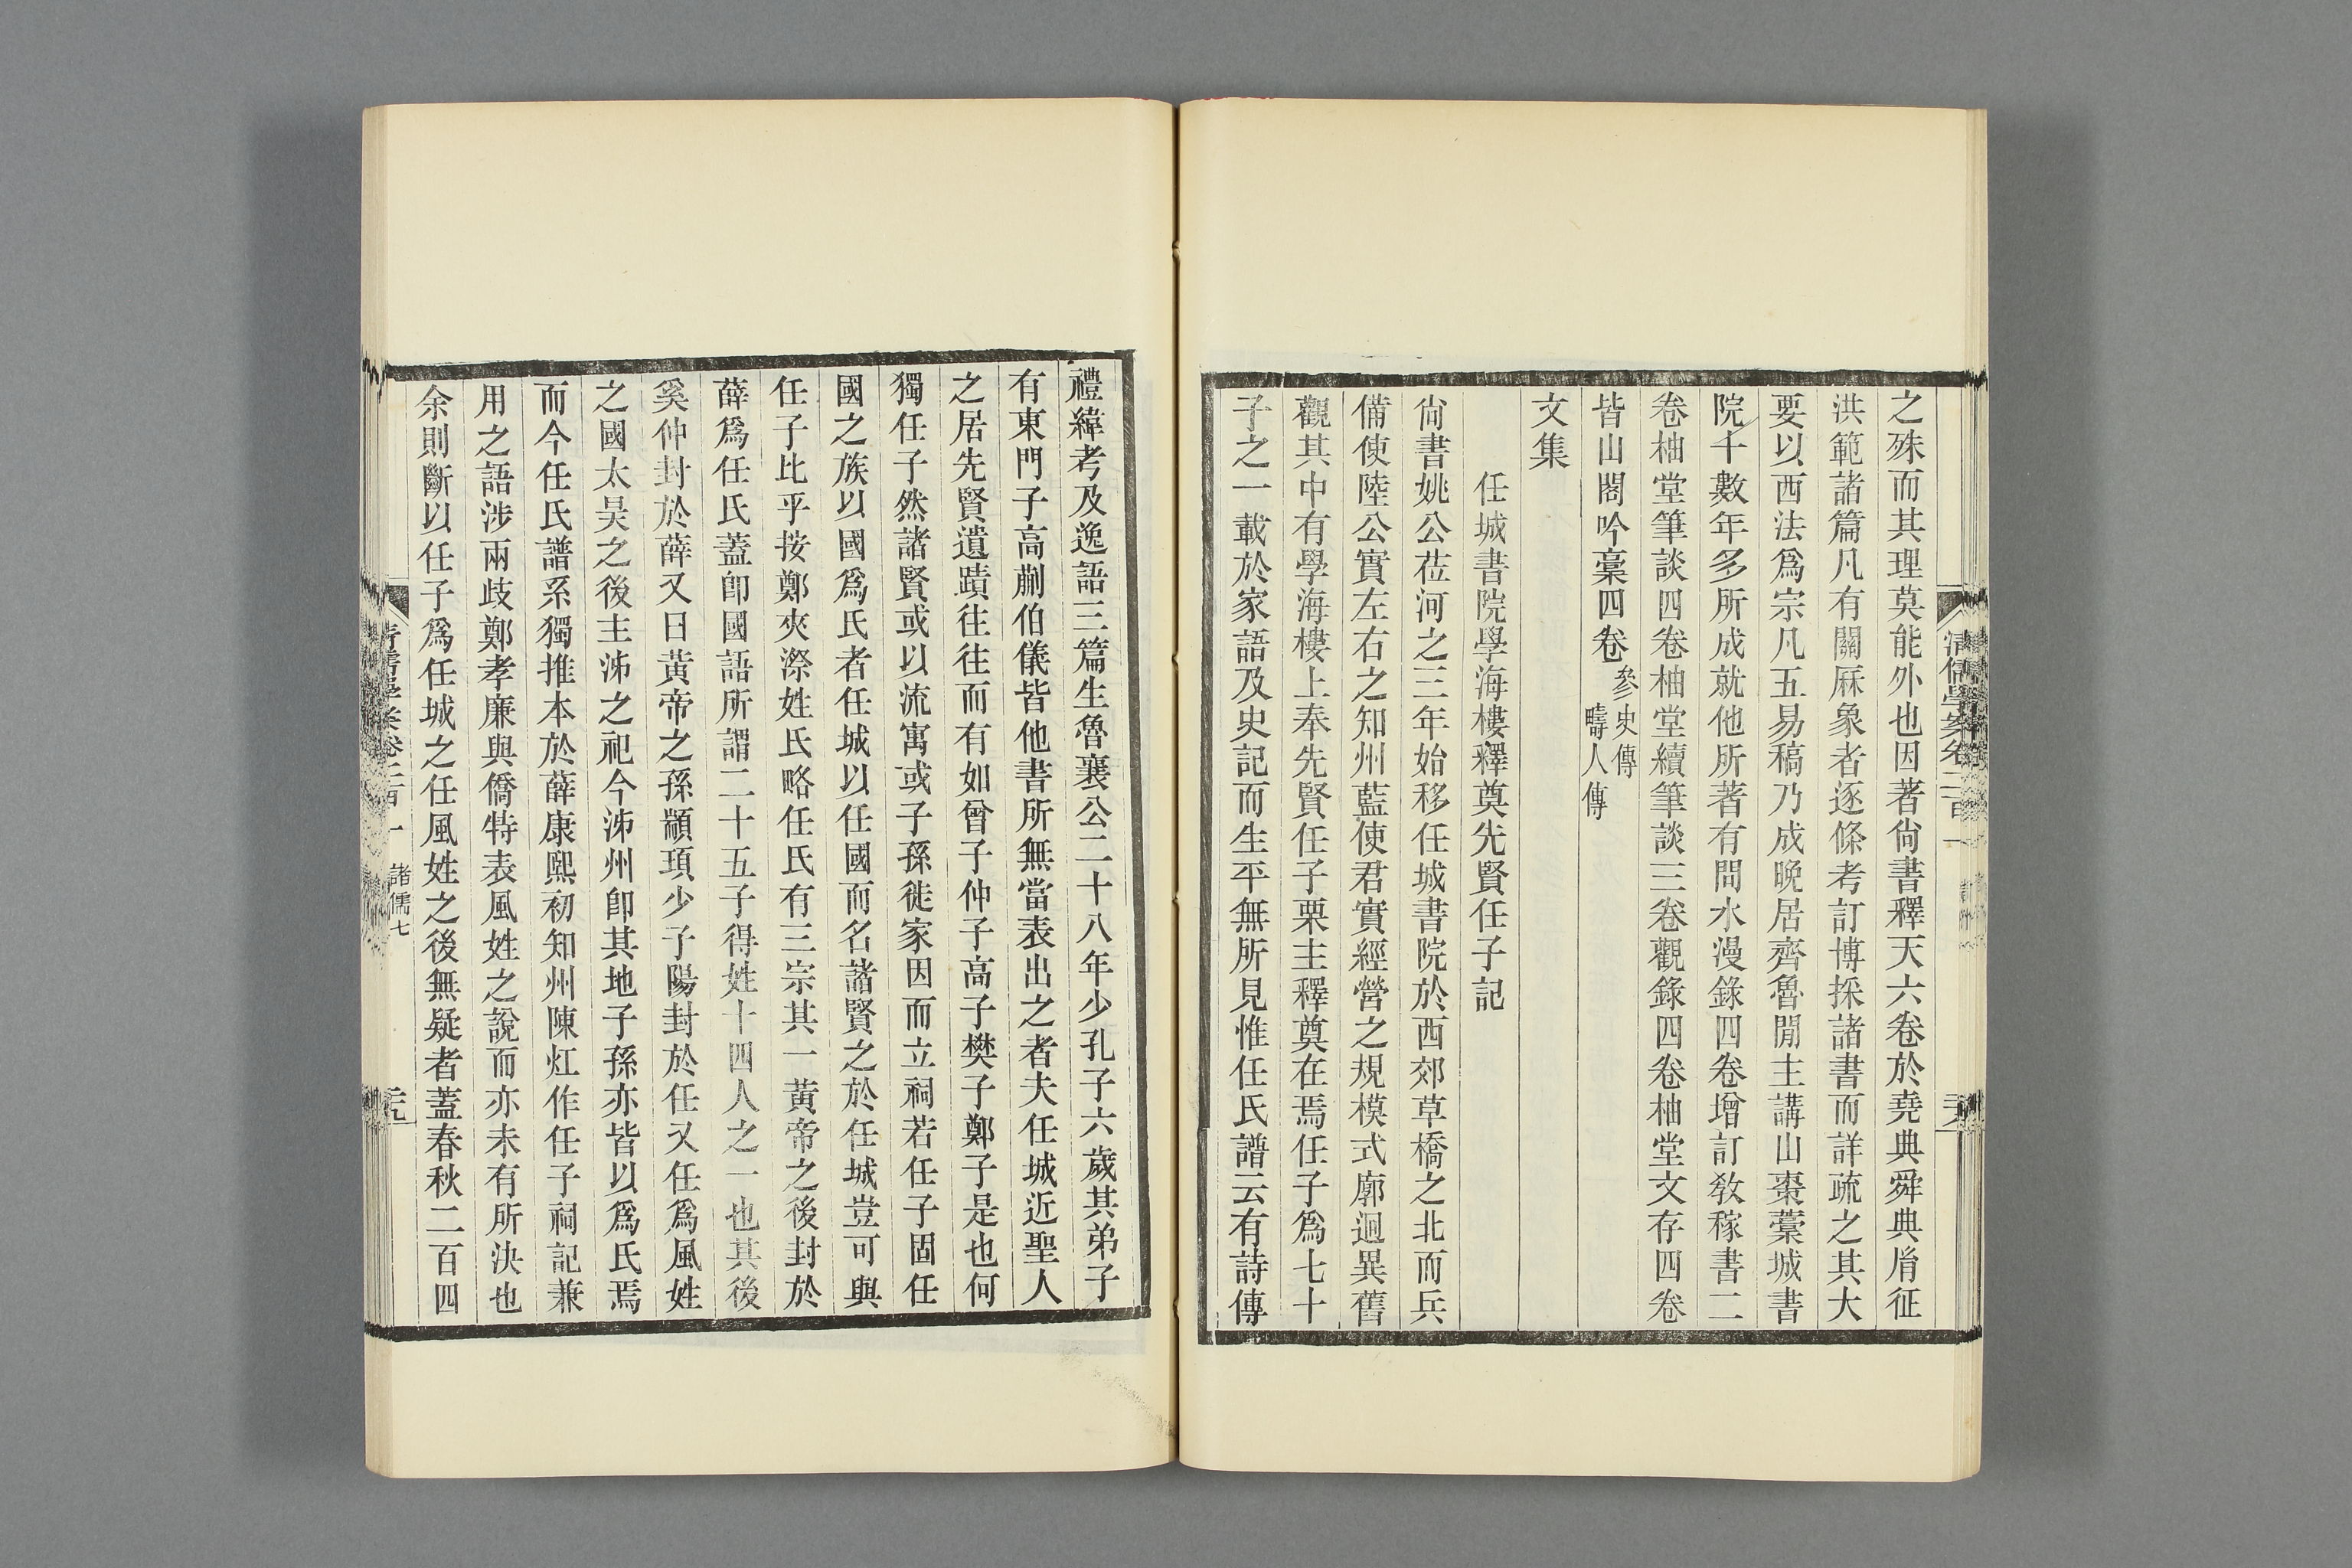 清儒學案卷二百一
之殊而其理莫能外也因著尙書釋天六卷於堯典舜典胤征
洪範諸篇凡有關厤象者逐條考訂博採諸書而詳疏之其大
要以西法爲宗凡五易稿乃成晩居齊魯閒主講山棗藁城書
院十數年多所成就他所著有問水漫錄四卷增訂敎稼書二
卷柚堂筆談四卷柚堂續筆談三卷觀錄四卷柚堂文存四卷
皆山閣吟稾四卷參史傳疇人傳
文集
任城書院學海樓釋奠先賢任子記
尙書姚公莅河之三年始移任城書院於西郊草橋之北而兵
備使陸公實左右之知州藍使君實經營之規模式廓迥異舊
觀其中有學海樓上奉先賢任子栗主釋奠在焉任子爲七十
子之一載於家語及史記而生平無所見惟任氏譜云有詩傳
禮緯考及逸語三篇生魯襄公二十八年少孔子六歲其弟子
有東門子高蒯伯儀皆他書所無當表出之者夫任城近聖人
之居先賢遺蹟往往而有如曾子仲子高子樊子鄭子是也何
獨任子然諸賢或以流寓或子孫徙家因而立祠若任子固任
國之族以國爲氏者任城以任國而名諸賢之於任城豈可與
任子比乎按鄭夾漈姓氏略任氏有三宗其一黃帝之後封於
薛爲任氏蓋卽國語所謂二十五子得姓十四人之一也其後
奚仲封於薛又曰黃帝之孫顓頊少子陽封於任又任爲風姓
之國太昊之後主泲之祀今泲州卽其地子孫亦皆以爲氏焉
而今任氏譜系獨推本於薛康熙初知州陳㶇作任子祠記兼
用之語涉兩歧鄭孝廉與僑特表風姓之說而亦未有所決也
余則斷以任子爲任城之任風姓之後無疑者蓋春秋二百四
諸儒七